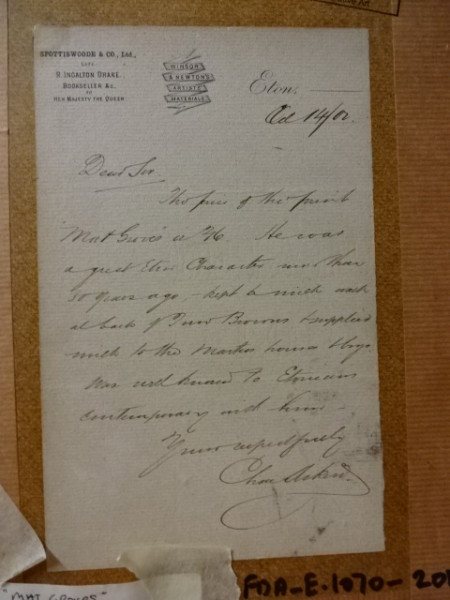 SPOTTISWOODE & CO., Ltd.,
LATE
R. INGALTON DRAKE,
BOOKSELLER &c.
TO
HER MAJESTY THE QUEEN
WINSOR
& NEWTON'S
ARTISTS'
MATERIALS
Eton,
Oct 14/02
Dear Sir
The price of the print
"Mat Groves" is 7/6. He was
a great Eton Character more than
50 years ago, - kept a milk walk
at back of Tom Browns & supplied
milk to the Masters houses & boys
Was well known to Etonians
contemporary with him -
Yours respectfully
Chas
"MAT GROVES"
FDA-E.1070-201